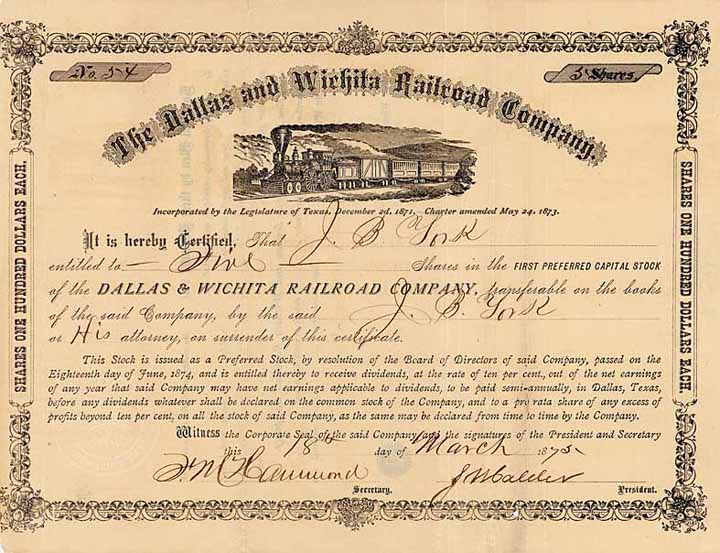 No. 54
5 Shares
The Dallas and Wichita Railroad Company.
Incorporated by the Legislature of Texas, December 2d, 1871, Charter amended May 24, 1873.
It is hereby Certified, That J. B. York
entitled to Five Shares in the FIRST PREFERRED CAPITAL STOCK
of the DALLAS & WICHITA RAILROAD COMPANY, transferable on the books
of the said Company, by the said J. B. York
or His attorney, on surrender of this certificate.
This Stock is issued as a Preferred Stock, by resolution of the Board of Directors of said Company, passed on the
Eighteenth day of June, 1874, and is entitled thereby to receive dividends, at the rate of ten per cent., out of the net earnings
of any year that said Company may have net earnings applicable to dividends, to be paid semi-annually, in Dallas, Texas,
before any dividends whatever shall be declared on the common stock of the Company, and to a pro rata share of any excess of
profits beyond ten per cent, on all the stock of said Company, as the same may be declared from time to time by the Company.
Witness the Corporate Seal of the said Company and the signatures of the President and Secretary
this 18th day of March 1875
Hammond
Secretary.
President.
SHARES ONE HUNDRED DOLLARS EACH.
SHARES ONE HUNDRED DOLLARS EACH